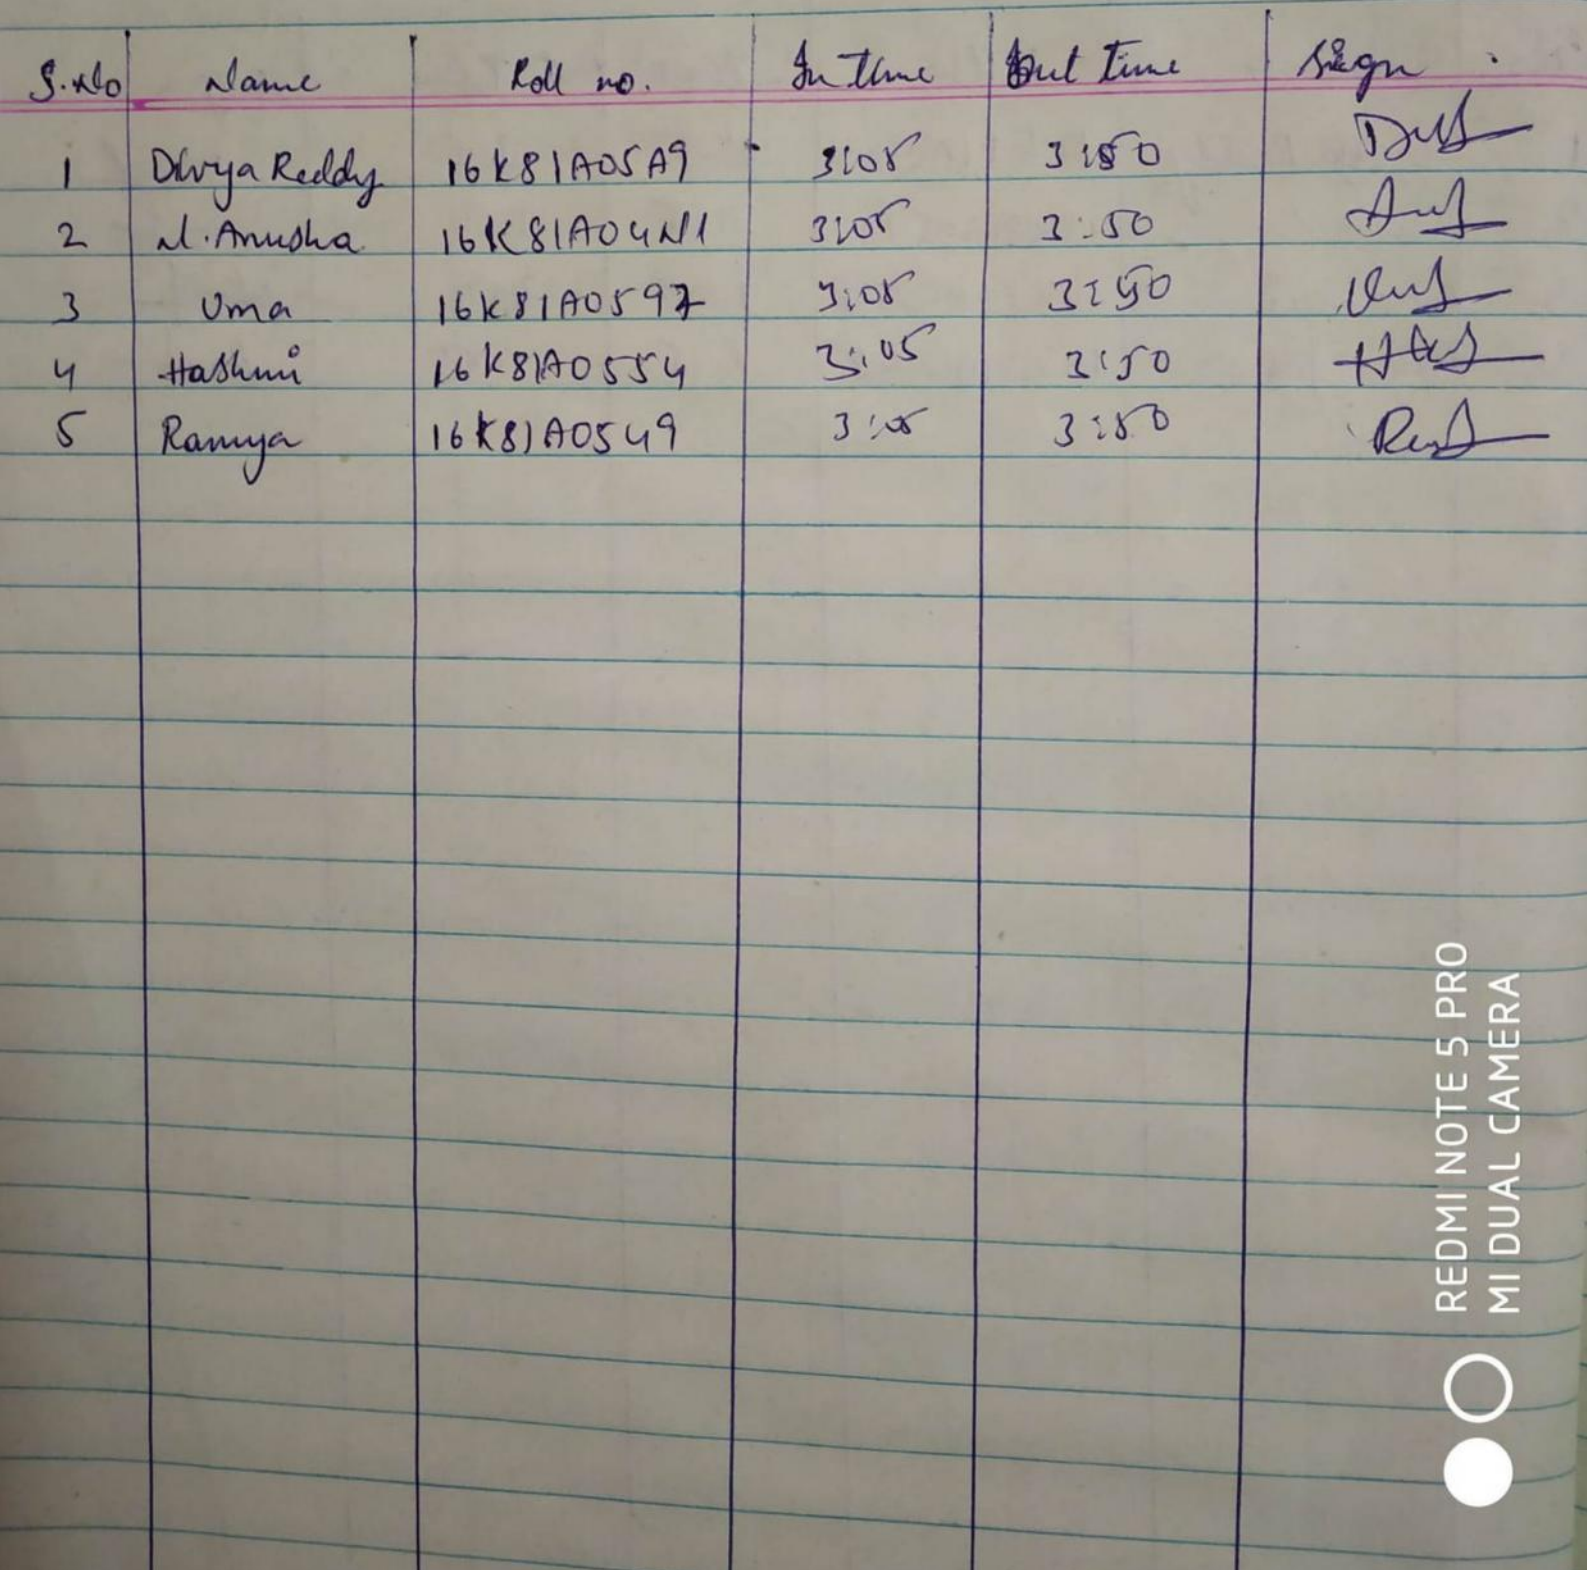 S.No Name Roll no. In time Out time Sign
1 Divya Reddy 16K81A05A9 3:05 3:50
2 N. Anusha 16K81A04N1 3:05 3:50
3 Uma 16K81A0597 3:05 3:50
4 Hashmi 16K81A0554 3:05 3:50
5 Ramya 16K81A0549 3:05 3:50
REDMI NOTE 5 PRO
MI DUAL CAMERA